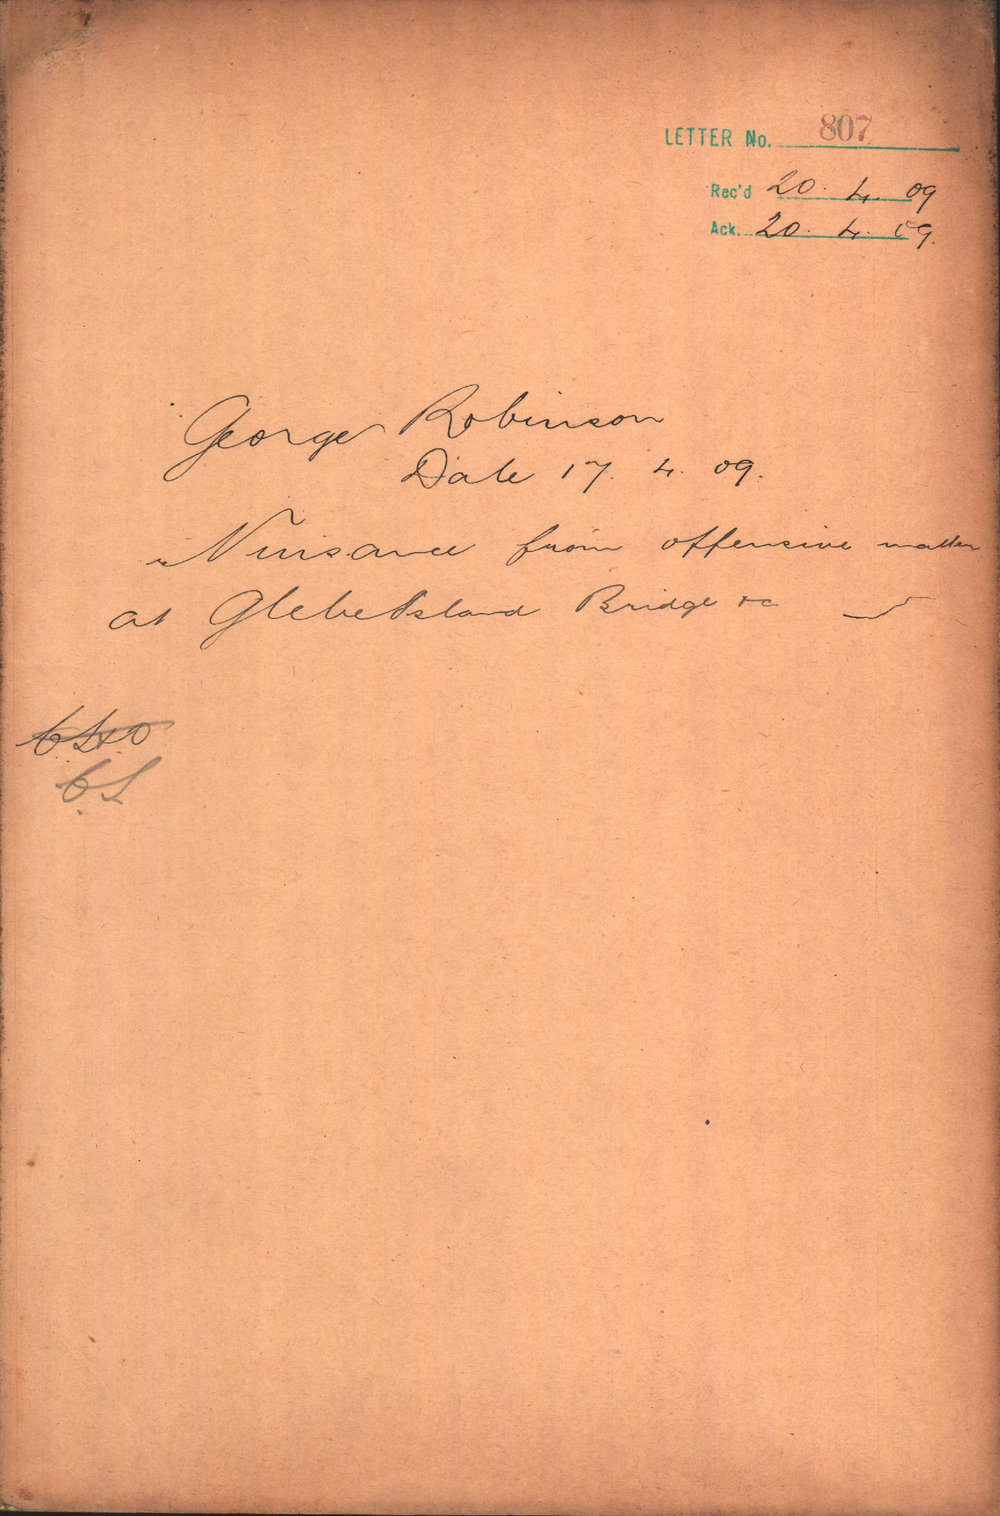 LETTER No. 807
Rec'd 20. 4. 09
Ack. 20. 4. 09.
George Robinson
Date 17. 4. 09.
Nuisance from offensive matter
at Glebe Island Bridge &c
C.S